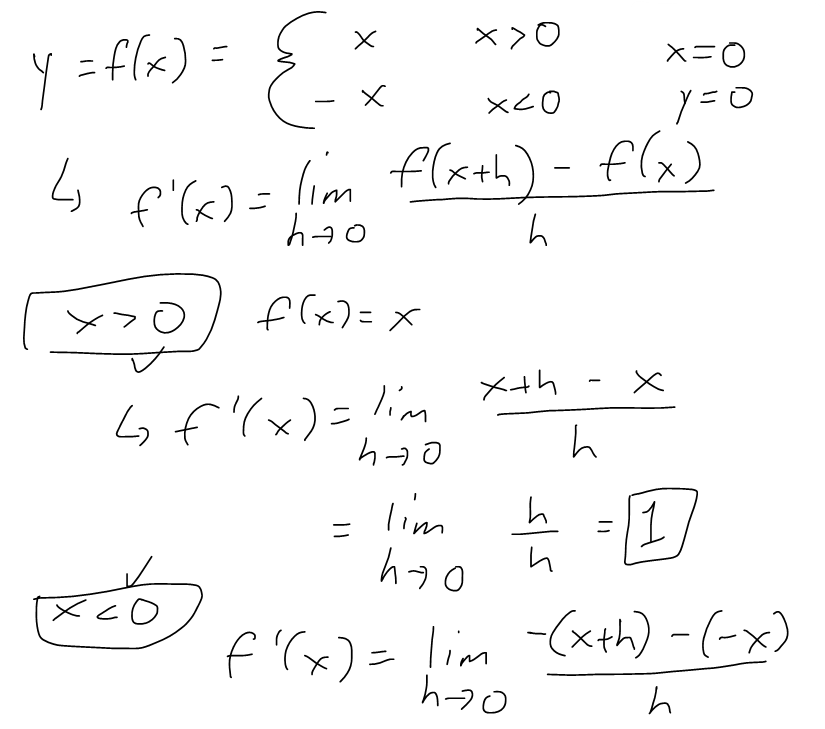 y = f(x) = { x   x > 0   x = 0
- x   x < 0   y = 0
↳ f'(x) = lim h→0 (f(x+h) - f(x))/h
x > 0   f(x) = x
✓
↳ f'(x) = lim h→0 (x+h - x)/h
= lim h→0 h/h = 1
✓
x < 0
f'(x) = lim h→0 (-(x+h) - (-x))/h